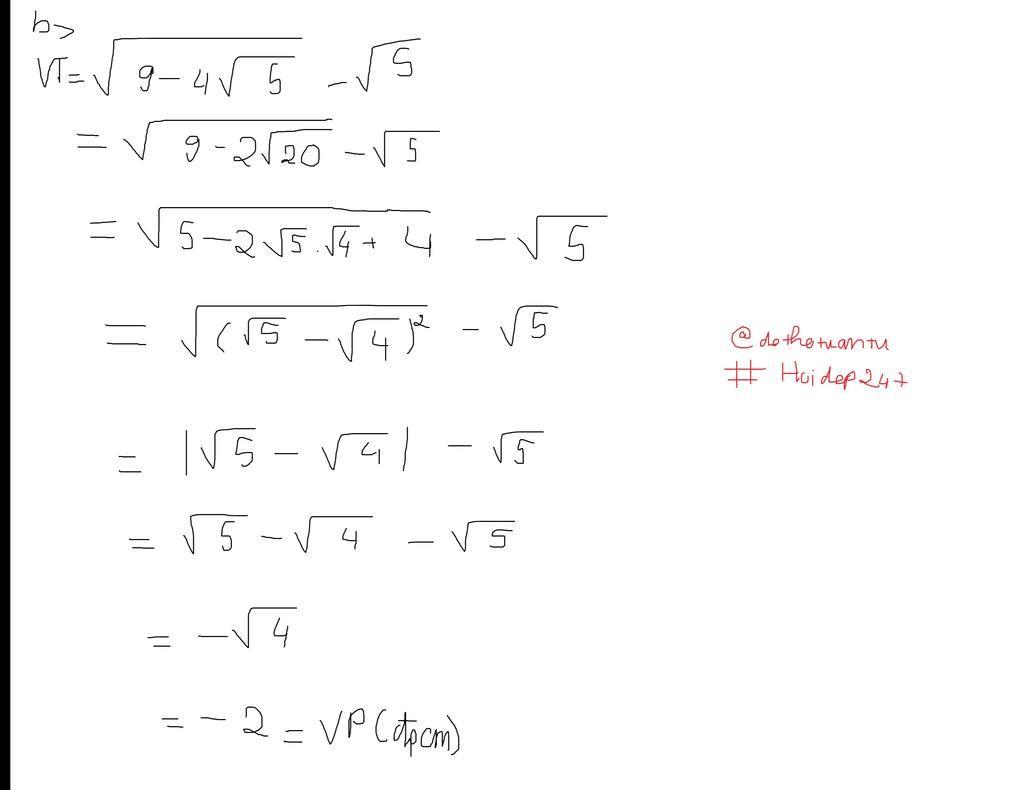 b>
VT = √(9 - 4√5) - √5
= √(9 - 2√20) - √5
= √(5 - 2√5 . √4 + 4) - √5
= √((√5 - √4)²) - √5
@dothotuantu
# Hoidap247
= |√5 - √4| - √5
= √5 - √4 - √5
= -√4
= -2 = VP (đpcm)